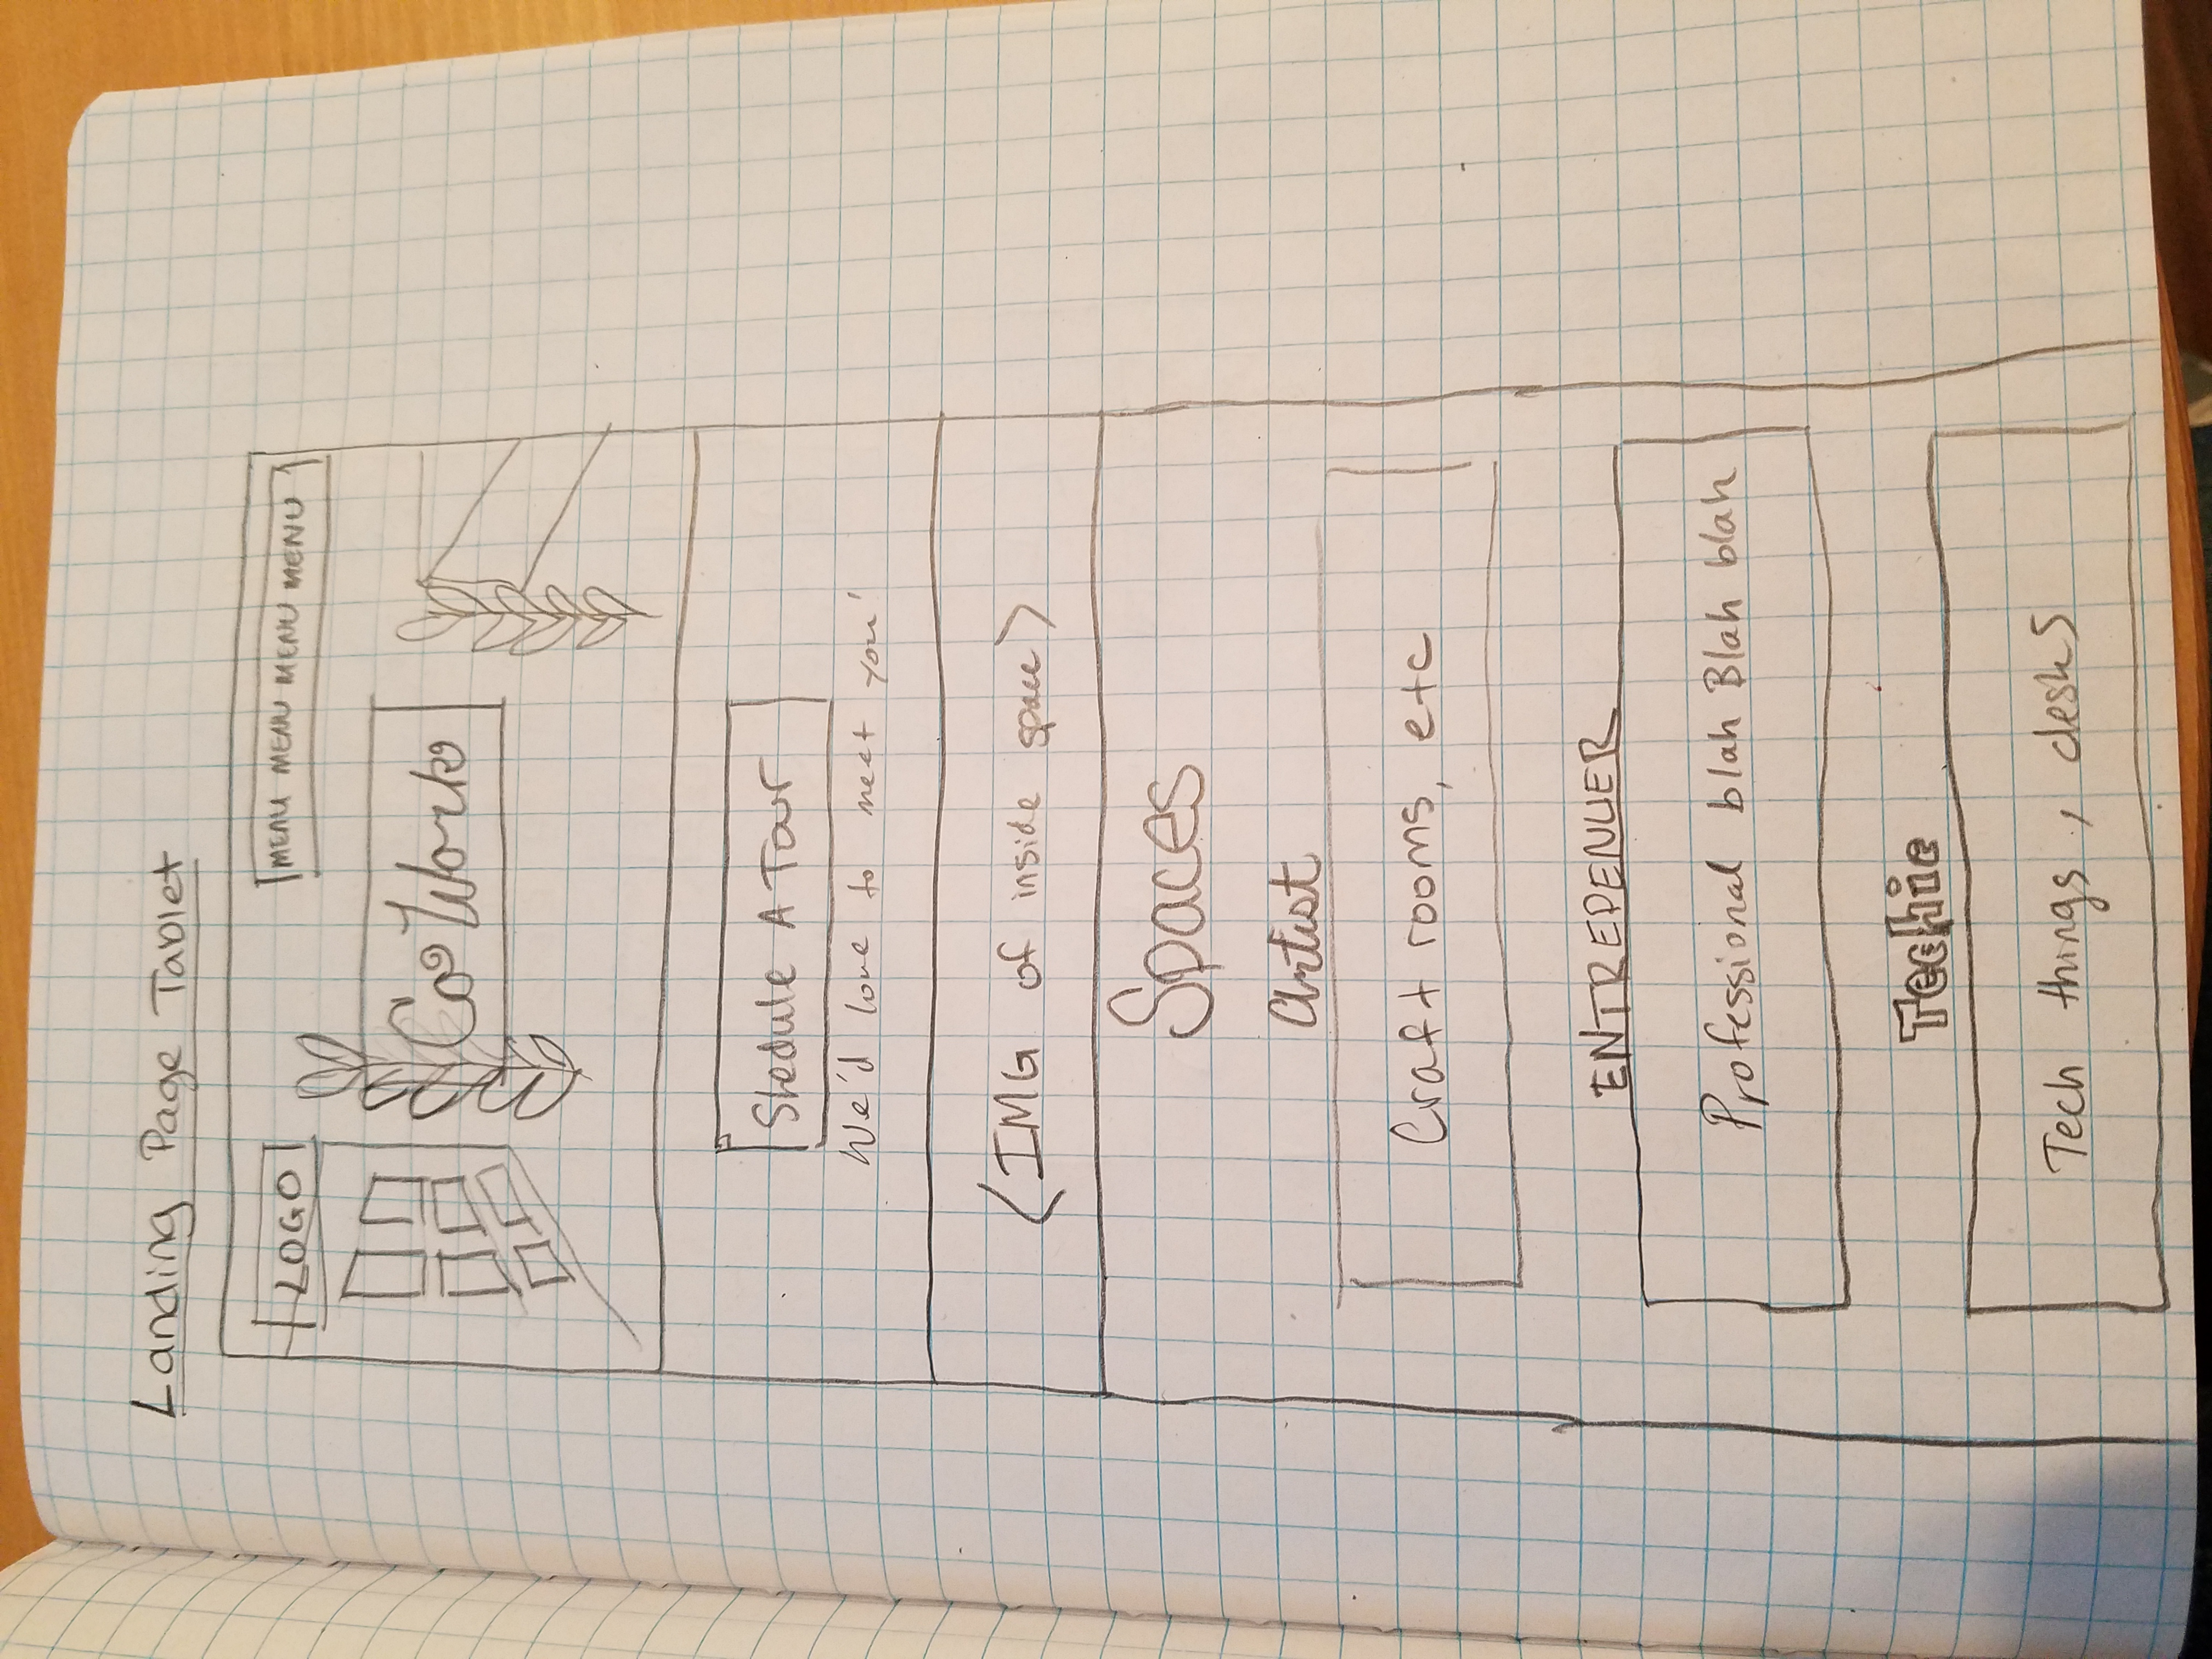 Landing Page Tablet
LOGO
MENU MENU MENU MENU
Co Work
Shedule A Tour
We'd love to meet you!
<IMG of inside space>
Spaces
Artist
Craft rooms, etc
ENTREPENUER
Professional blah Blah blah
Techie
Tech things, desks